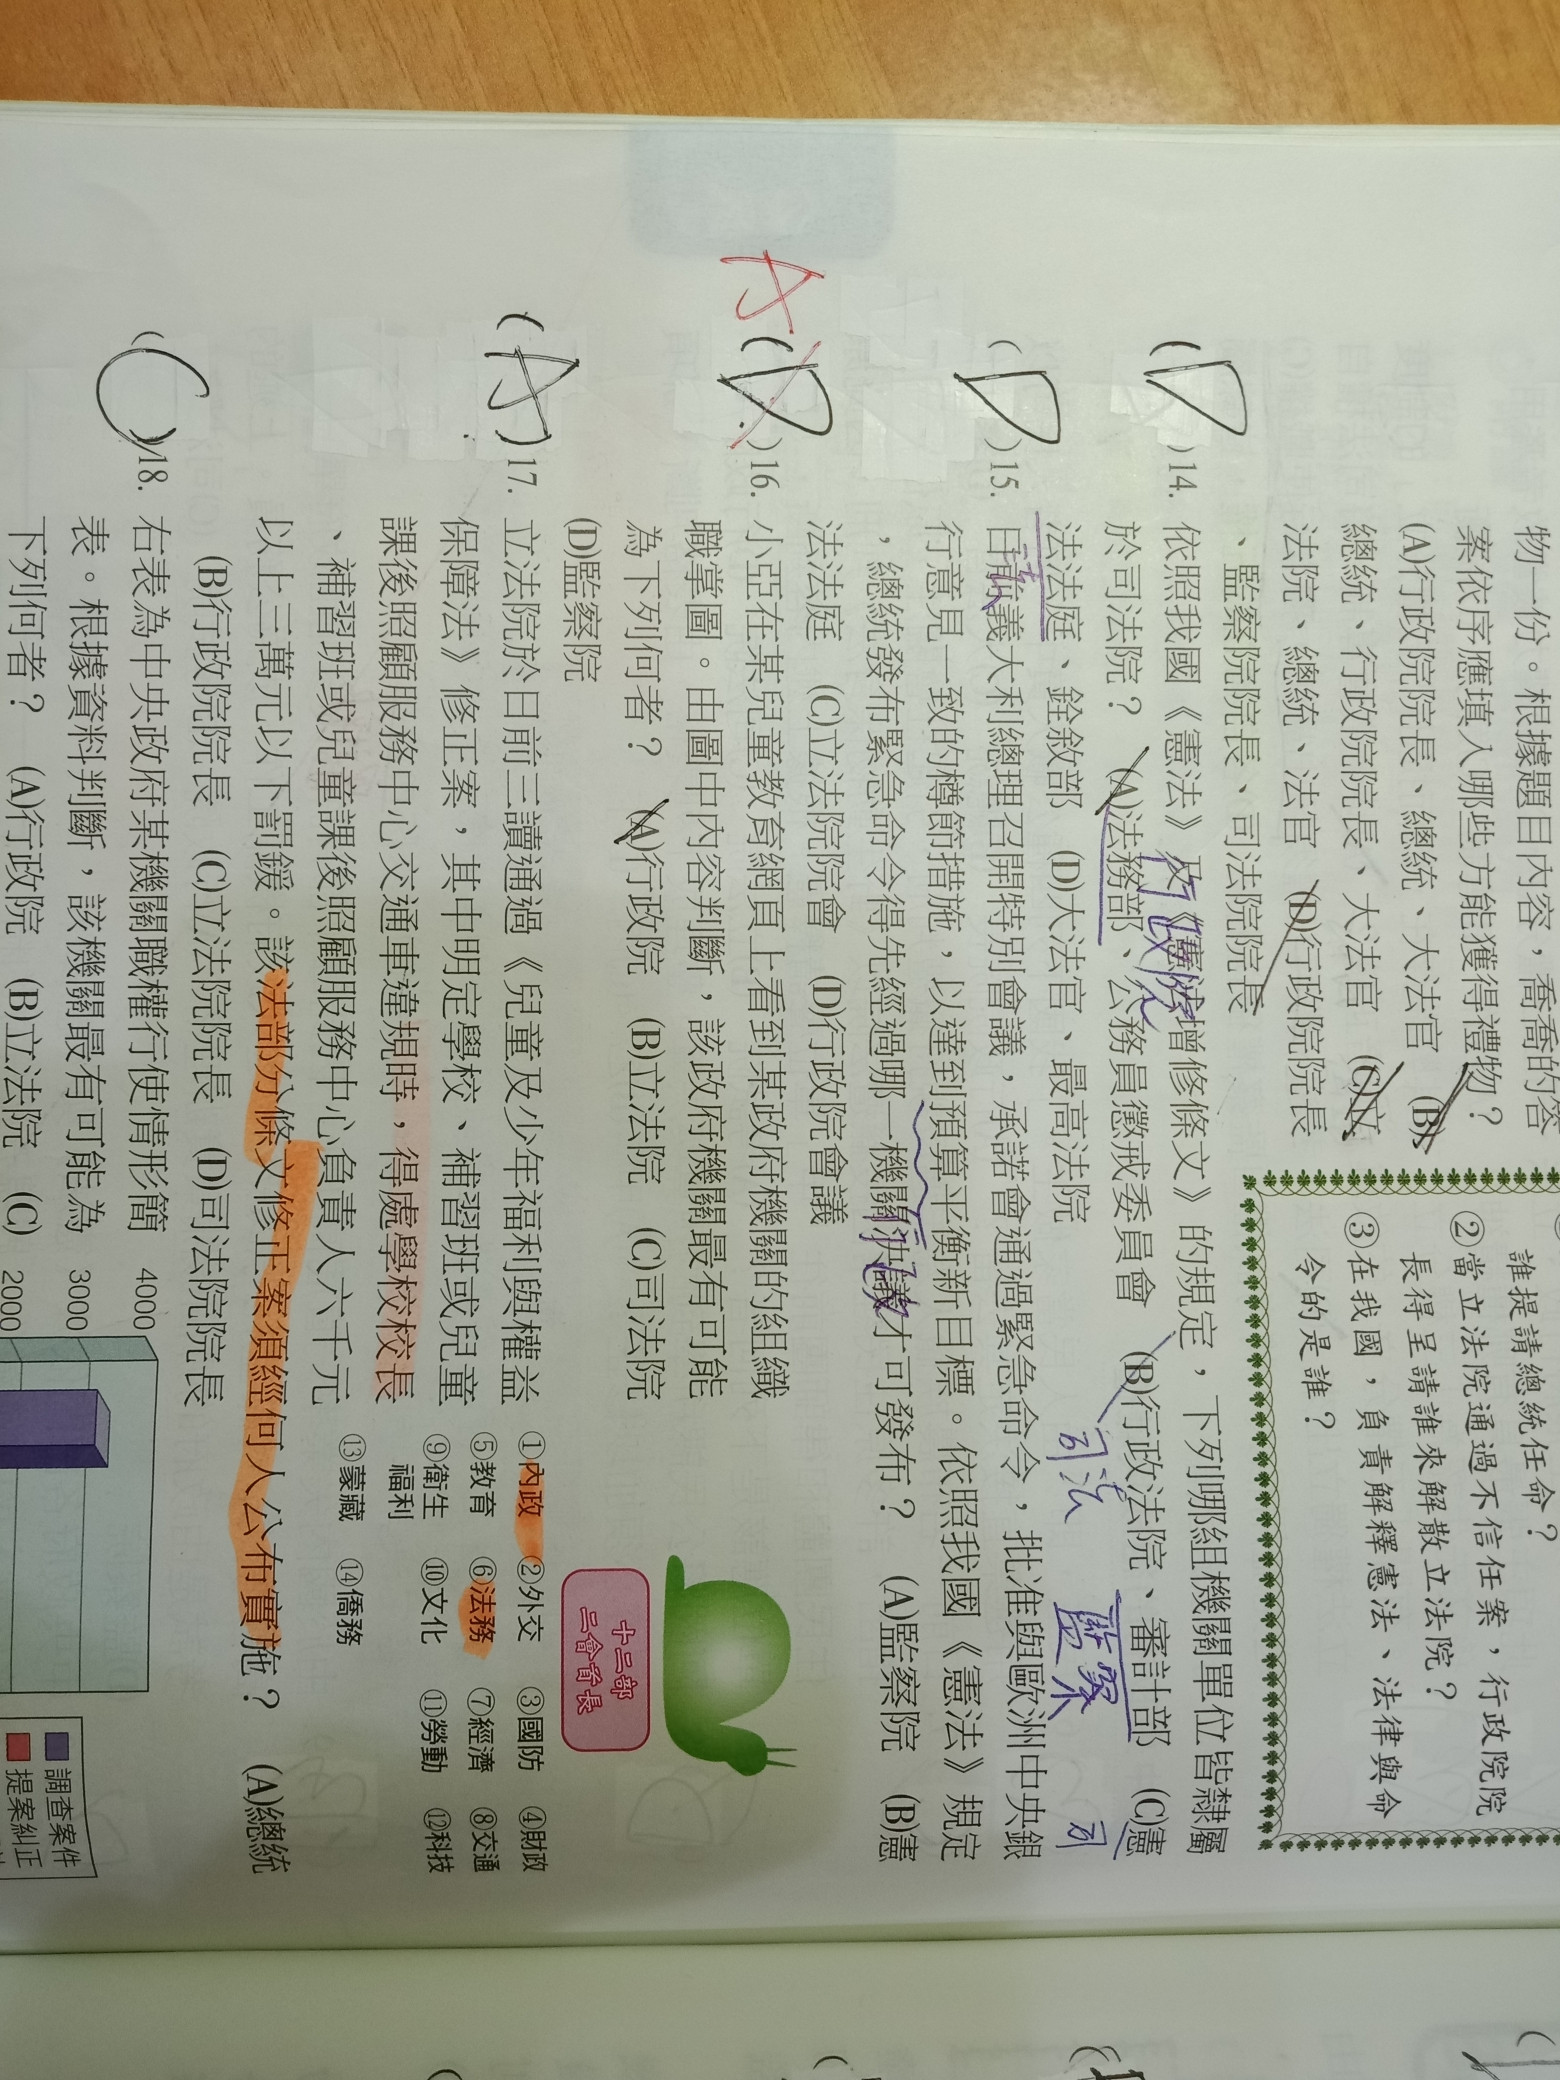 物一份。根據題目內容，喬喬的答
案依序應填入哪些方能獲得禮物？
(A)行政院院長、總統、大法官　(B)
總統、行政院院長、大法官　(C)立
法院、總統、法官　(D)行政院院長
、監察院院長、司法院院長
誰提請總統任命？
②當立法院通過不信任案，行政院院
長得呈請誰來解散立法院？
③在我國，負責解釋憲法、法律與命
令的是誰？
(D)14. 依照我國《憲法》及《憲法增修條文》的規定，下列哪組機關單位皆隸屬
於司法院？　(A)法務部、公務員懲戒委員會　(B)行政法院、審計部　(C)憲
行政院
司法
監察
司
法法庭、銓敘部　(D)大法官、最高法院
考試
(D)15. 日前義大利總理召開特別會議，承諾會通過緊急命令，批准與歐洲中央銀
行意見一致的樽節措施，以達到預算平衡新目標。依照我國《憲法》規定
，總統發布緊急命令得先經過哪一機關決議才可發布？　(A)監察院　(B)憲
法法庭　(C)立法院院會　(D)行政院會議
A (D)16. 小亞在某兒童教育網頁上看到某政府機關的組織
職掌圖。由圖中內容判斷，該政府機關最有可能
為下列何者？　(A)行政院　(B)立法院　(C)司法院
(D)監察院
十二部
二會首長
①內政　②外交　③國防　④財政
⑤教育　⑥法務　⑦經濟　⑧交通
⑨衛生　⑩文化　⑪勞動　⑫科技
福利
⑬蒙藏　⑭僑務
(A)17. 立法院於日前三讀通過《兒童及少年福利與權益
保障法》修正案，其中明定學校、補習班或兒童
課後照顧服務中心交通車違規時，得處學校校長
、補習班或兒童課後照顧服務中心負責人六千元
以上三萬元以下罰鍰。該法部分條文修正案須經何人公布實施？　(A)總統
(B)行政院院長　(C)立法院院長　(D)司法院院長
(C)18. 右表為中央政府某機關職權行使情形簡
表。根據資料判斷，該機關最有可能為
下列何者？　(A)行政院　(B)立法院　(C)
4000
3000
2000
調查案件
提案糾正